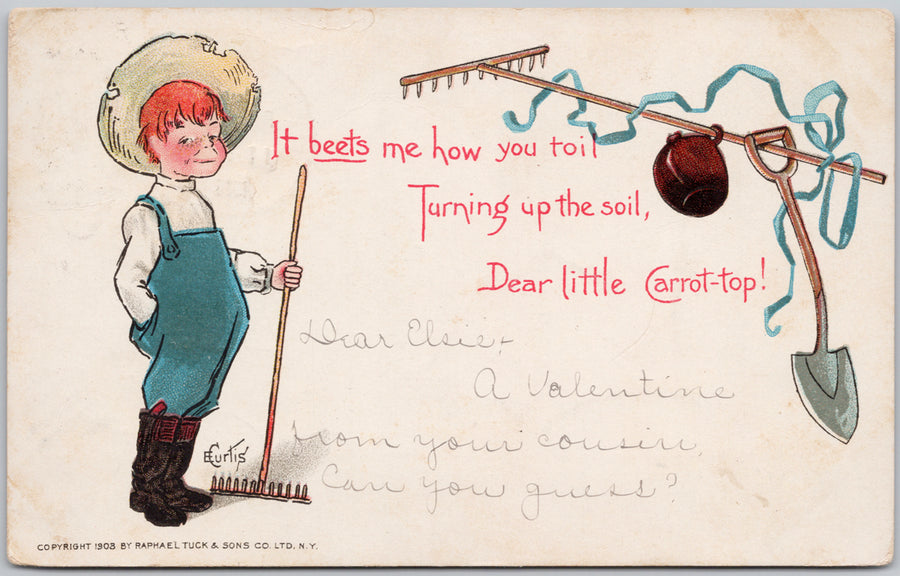 It beets me how you toil
Turning up the soil,
Dear little Carrot-top!
Dear Elsie,-
A Valentine
from your cousin,
Can you guess?
E Curtis
COPYRIGHT 1903 BY RAPHAEL TUCK & SONS CO. LTD. N.Y.